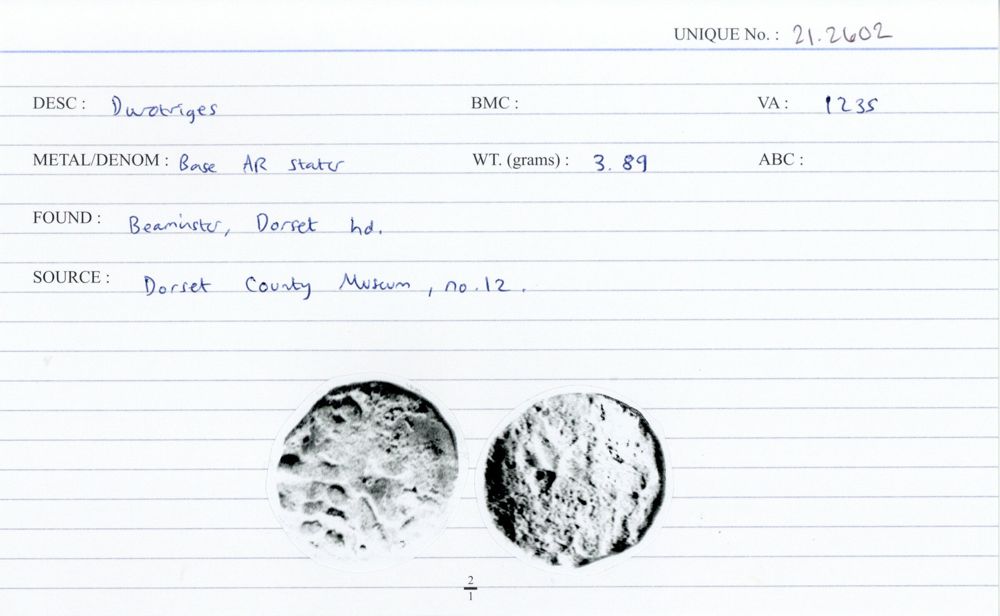 UNIQUE No. : 21.2602
DESC : Durotriges BMC : VA : 1235
METAL/DENOM : Base AR stater WT. (grams) : 3.89 ABC :
FOUND : Beaminster, Dorset hd.
SOURCE : Dorset County Museum, no.12.
2
1